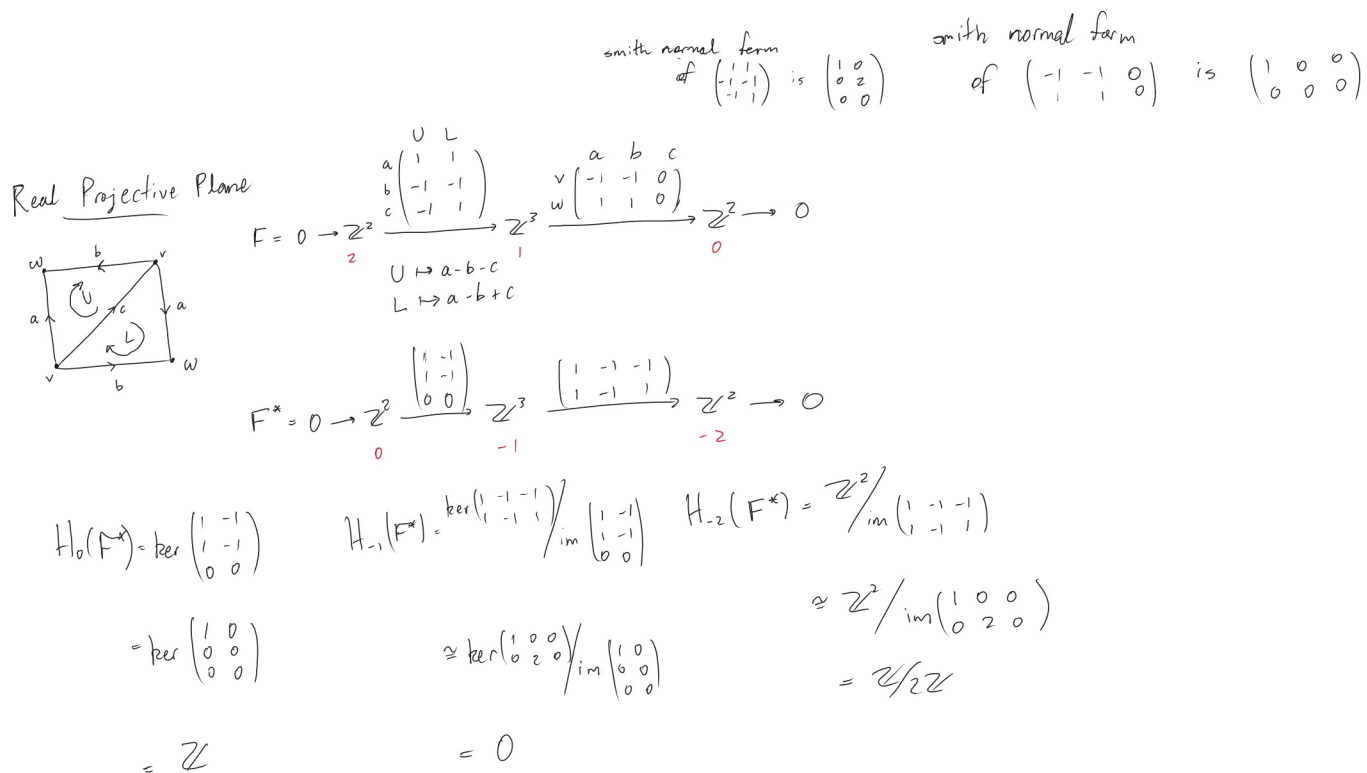 smith normal form
of (1 1; -1 -1; -1 1) is (1 0; 0 2; 0 0)
smith normal form
of (-1 -1 0; 1 1 0) is (1 0 0; 0 0 0)
Real Projective Plane
U L
a (1 1
b -1 -1
c -1 1)
a b c
v (-1 -1 0
w 1 1 0)
F = 0 → ℤ² → ℤ³ → ℤ² → 0
2 1 0
U ↦ a-b-c
L ↦ a-b+c
w b v
a U c L a
v b w
(1 -1; 1 -1; 0 0) (1 -1 -1; 1 -1 1)
F* = 0 → ℤ² → ℤ³ → ℤ² → 0
0 -1 -2
H₀(F*) = ker (1 -1; 1 -1; 0 0)
= ker (1 0; 0 0; 0 0)
= ℤ
H₋₁(F*) = ker (1 -1 -1; 1 -1 1) / im (1 -1; 1 -1; 0 0)
≅ ker (1 0 0; 0 2 0) / im (1 0; 0 0; 0 0)
= 0
H₋₂(F*) = ℤ² / im (1 -1 -1; 1 -1 1)
≅ ℤ² / im (1 0 0; 0 2 0)
= ℤ/2ℤ